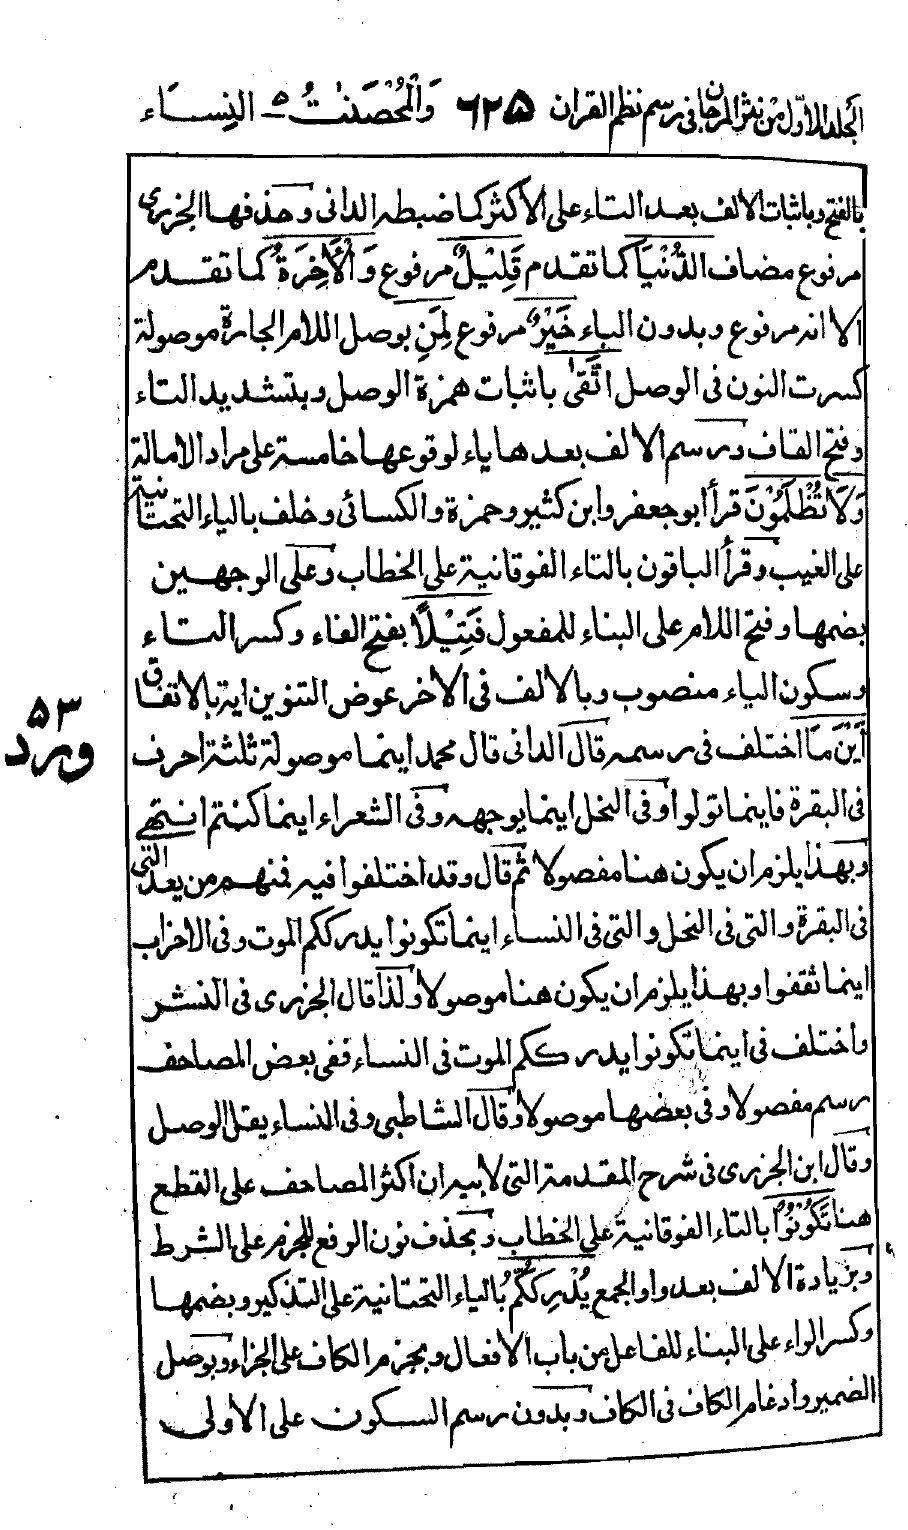 الجلد الاول من نثر المرجان في رسم نظم القران ٦٢٥ وَالْمُحْصَنٰتُ ٥ - النساء
بالفتح وباثبات الالف بعد التاء على الاكثر كما ضبطه الدانى وحذفها الجزرى
مرفوع مضاف الدُّنْيَا كما تقدم قَلِيْلٌ مرفوع وَالْاٰخِرَةُ كما تقدم
الا انه مرفوع وبدون الياء خَيْرٌ مرفوع لِمَنِ بوصل اللام الجارة موصولة
كسرت النون فى الوصل اتَّقٰى باثبات همزة الوصل وبتشديد التاء
وفتح القاف ورسم الالف بعدها ياء لوقوعها خامسة على مراد الامالة
وَلَا تُظْلَمُوْنَ قرأ ابو جعفر وابن كثير وحمزة والكسائى وخلف بالياء التحتانية
على الغيب وقرأ الباقون بالتاء الفوقانية على الخطاب وعلى الوجهين
بضمها وفتح اللام على البناء للمفعول فَتِيْلًا بفتح الفاء وكسر التاء
وسكون الياء منصوب وبالالف فى الاخر عوض التنوين اية بالاتفاق
اَيْنَ مَا اختلف فى رسمه قال الدانى قال محمد اينما موصولة ثلثة احرف
فى البقرة فاينما تولوا وفى النحل اينما يوجهه وفى الشعراء اينما كنتم انتهى
وبهذا يلزم ان يكون هنا مفصولا ثم قال وقد اختلفوا فيه فمنهم من يعد التى
فى البقرة والتى فى النحل والتى فى النساء اينما تكونوا يدرككم الموت وفى الاحزاب
اينما ثقفوا وبهذا يلزم ان يكون هنا موصولا ولذا قال الجزرى فى النشر
واختلف فى اينما تكونوا يدرككم الموت فى النساء ففى بعض المصاحف
رسم مفصولا وفى بعضها موصولا وقال الشاطبى وفى النساء يقل الوصل
وقال ابن الجزرى فى شرح المقدمة التى لابيه ان اكثر المصاحف على القطع
هنا تَكُوْنُوْا بالتاء الفوقانية على الخطاب وبحذف نون الرفع للجزم على الشرط
وبزيادة الالف بعد واو الجمع يُدْرِكْكُّمُ بالياء التحتانية على التذكير وبضمها
وكسر الراء على البناء للفاعل من باب الافعال وبجزم الكاف على الجزاء وبوصل
الضمير وادغام الكاف فى الكاف وبدون رسم السكون على الاولى
٥٣
ورد